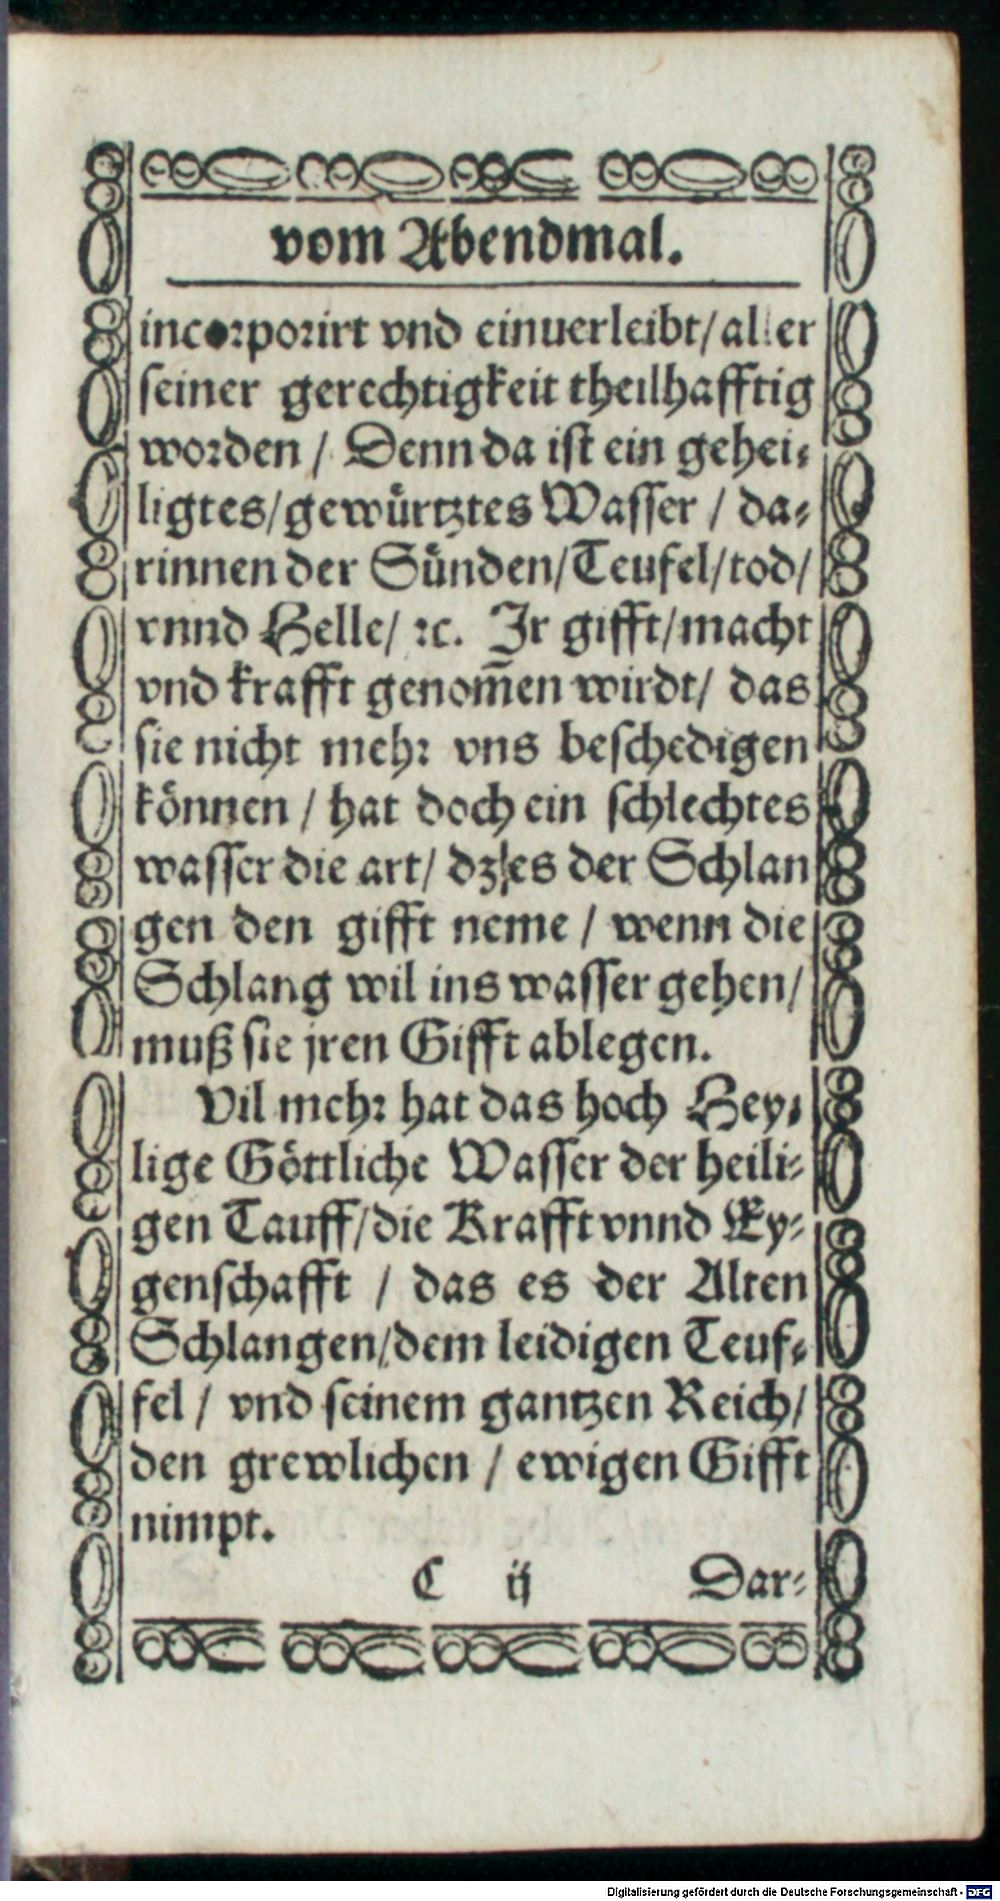 vom Abendmal.
incorporirt vnd einuerleibt/ aller
seiner gerechtigkeit theilhafftig
worden / Denn da ist ein gehei-
ligtes/ gewürtztes Wasser / da-
rinnen der Sünden/ Teufel/ tod/
vnnd Helle/ ꝛc. Jr gifft/ macht
vnd krafft genom̃en wirdt/ das
sie nicht mehr vns beschedigen
können / hat doch ein schlechtes
wasser die art/ dz es der Schlan
gen den gifft neme / wenn die
Schlang wil ins wasser gehen/
muß sie jren Gifft ablegen.
Vil mehr hat das hoch Hey-
lige Göttliche Wasser der heili-
gen Tauff/ die Krafft vnnd Ey-
genschafft / das es der Alten
Schlangen/ dem leidigen Teuf-
fel / vnd seinem gantzen Reich/
den grewlichen / ewigen Gifft
nimpt.
C ij Dar-
Digitalisierung gefördert durch die Deutsche Forschungsgemeinschaft - DFG